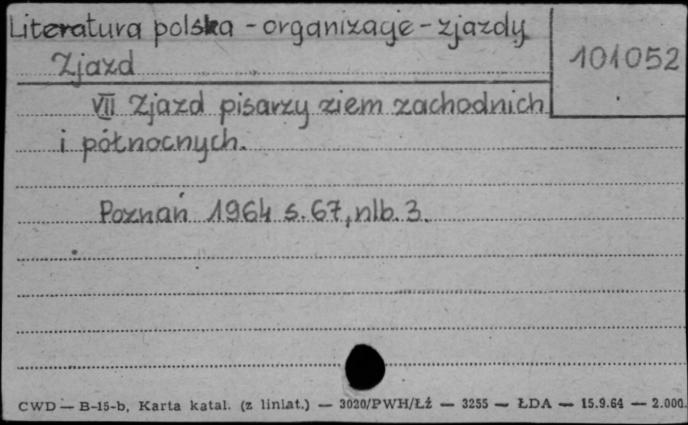 Literatura polska - organizacje - zjazdy
101052
Zjazd
VII Zjazd pisarzy ziem zachodnich
i północnych.
Poznań 1964 s. 67, nlb. 3.
CWD — B-15-b, Karta katal. (z liniat.) — 3020/PWH/Łź — 3255 — ŁDA — 15.9.64 — 2.000.